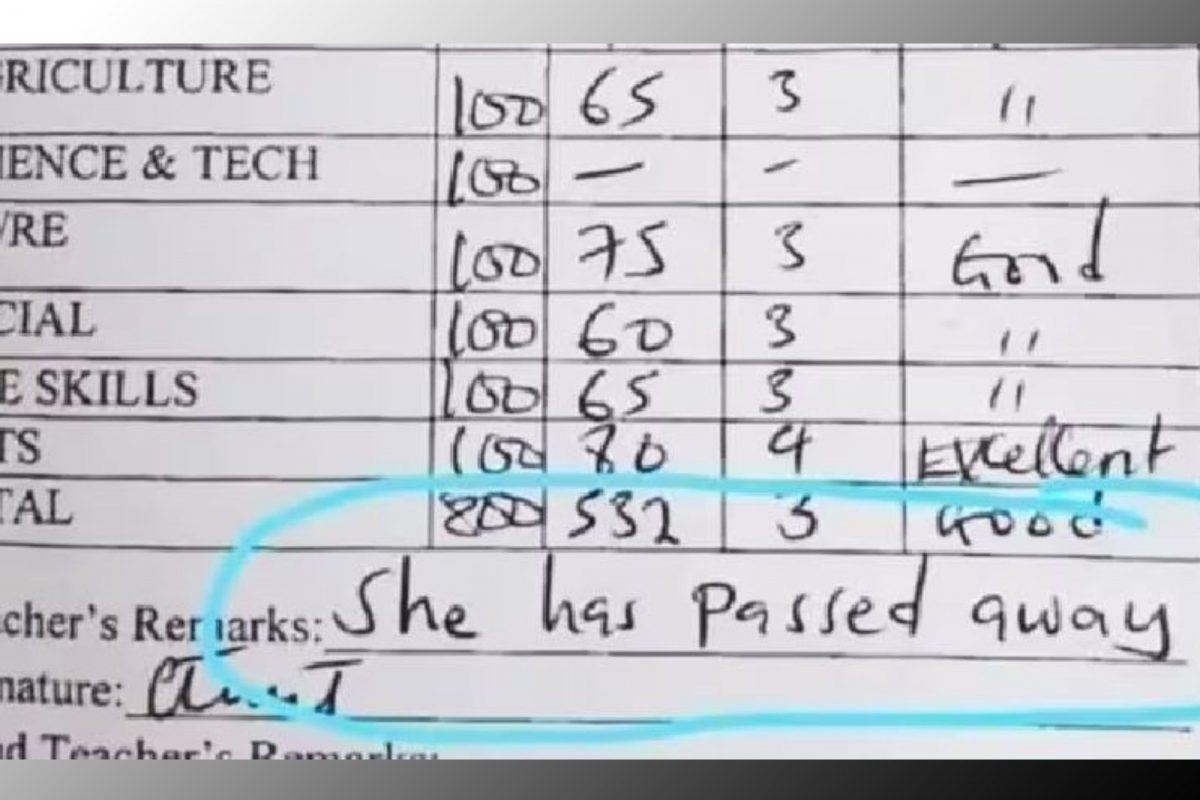 GRICULTURE 100 65 3 "
IENCE & TECH 100 — - —
/RE 100 75 3 Good
CIAL 100 60 3 "
E SKILLS 100 65 3 "
TS 100 80 4 Excellent
TAL 800 532 3 Good
cher's Remarks: She has passed away
nature:
d Teacher's Remarks: